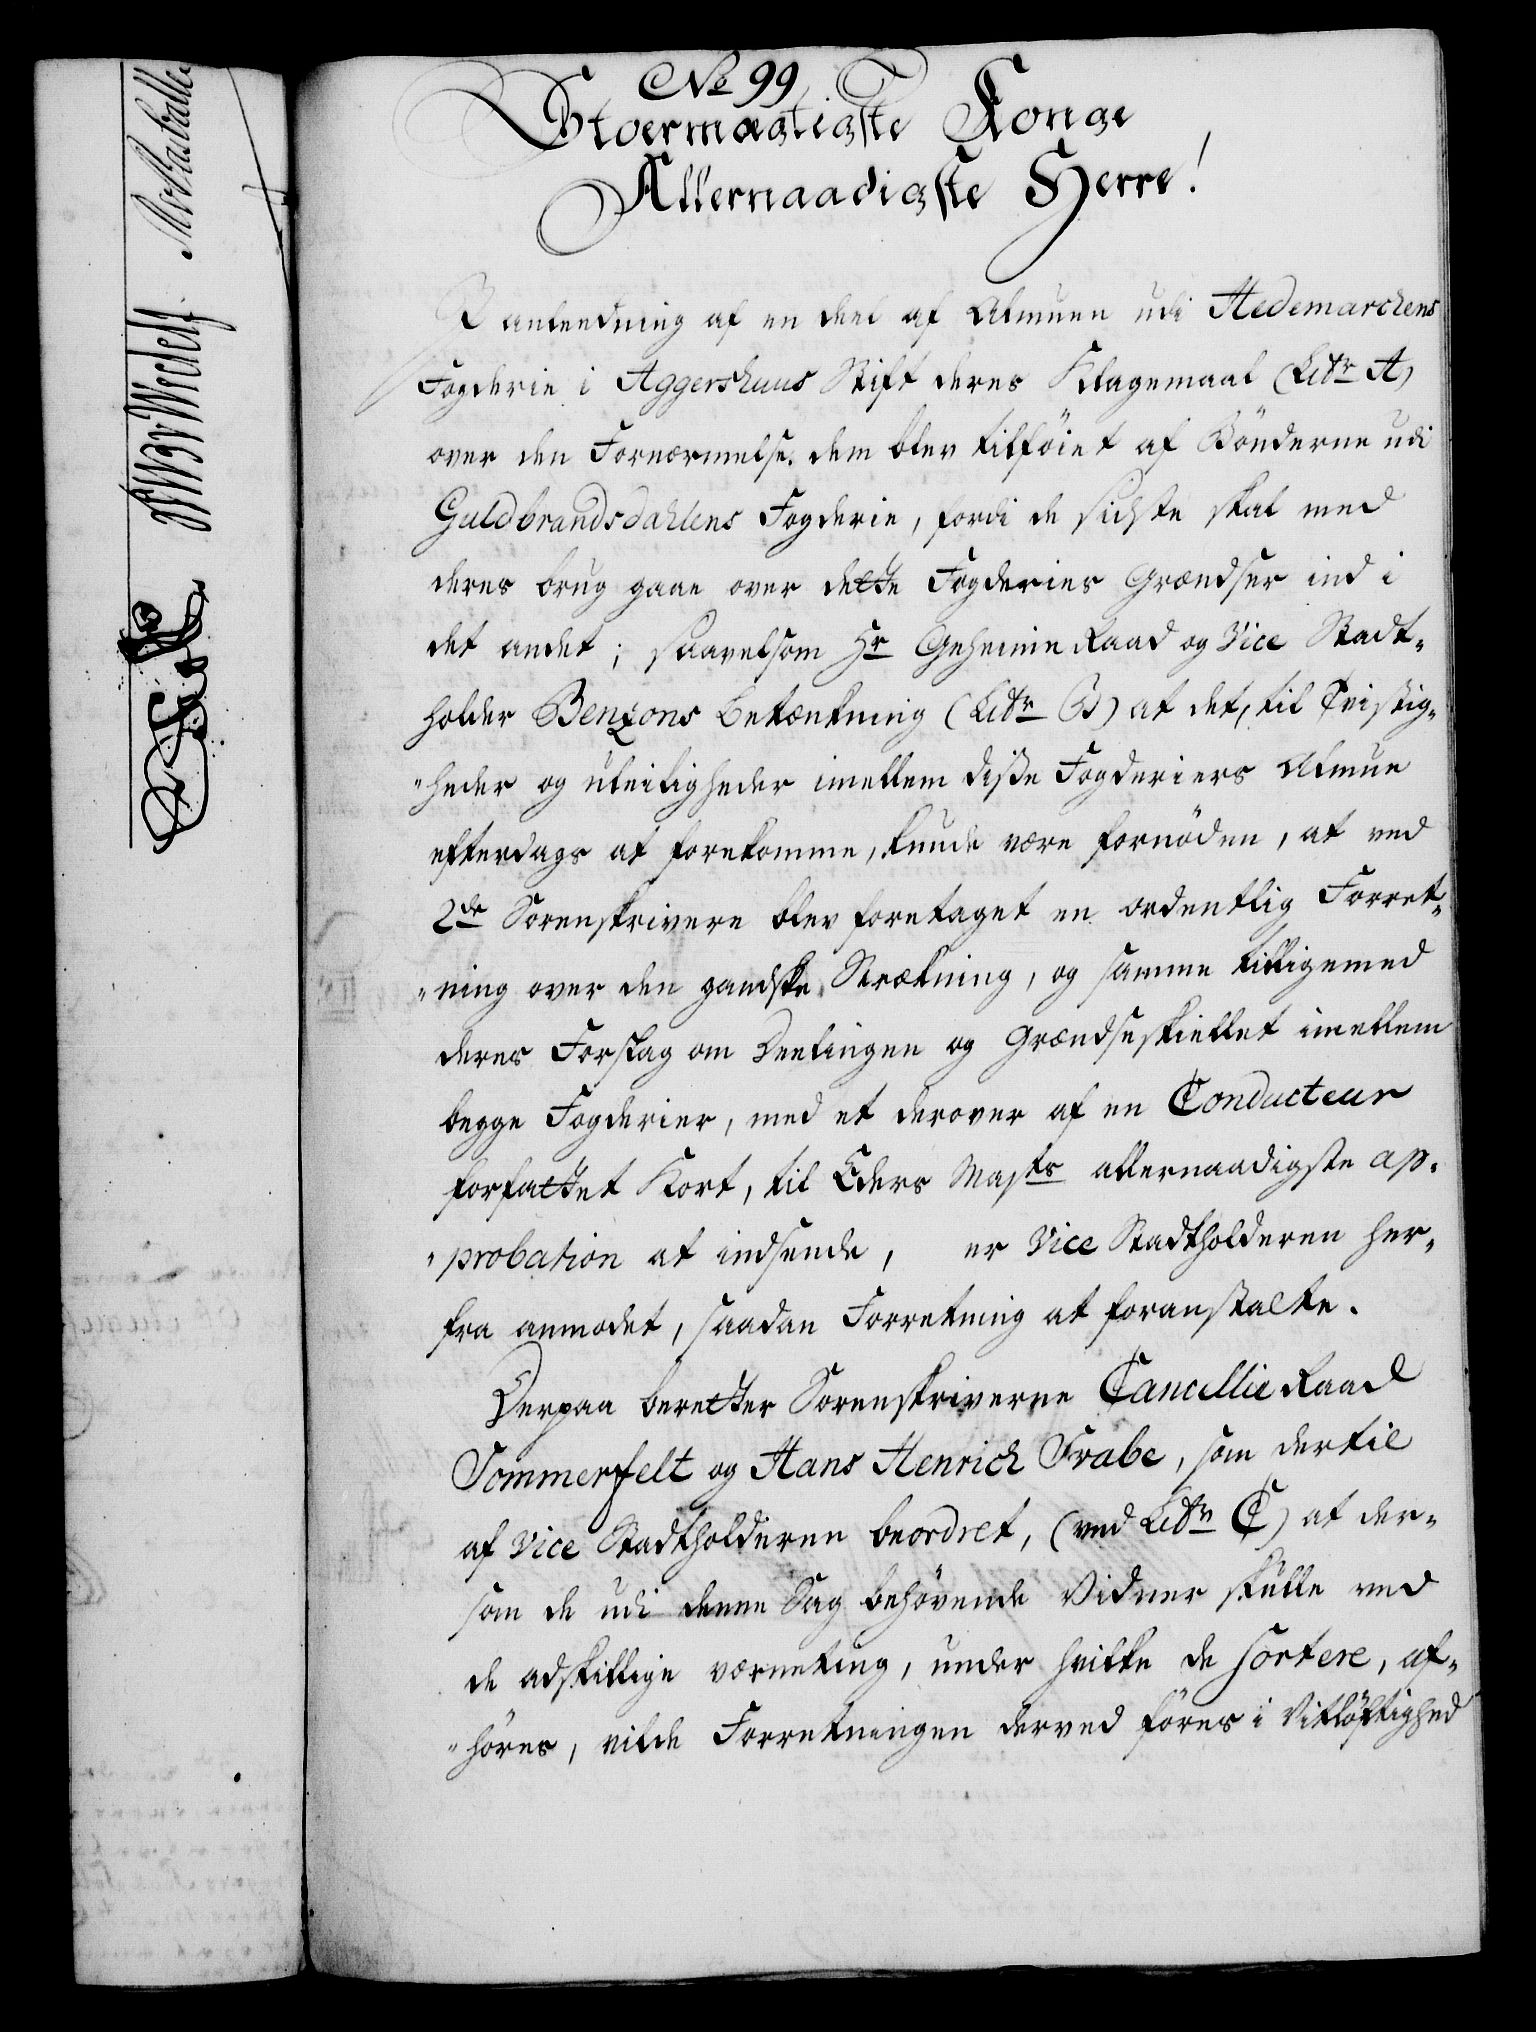 No 99
Stoermægtigste Konge
Allernaadigste Herre!
I anledning af en deel af Almuen udi Hedemarchens
Fogderie i Aggershuus Stift deres Klagemaal (Litr A)
over den Fornærmelse, dem blev tilföiet af Bönderne udi
Guldbrandsdahlens Fogderie, fordi de sidste skal med
deres brug gaae over dette Fogderies Grændser ind i
det andet; saavelsom Hr Geheime Raad og Vice Stadt-
holder Benzons Betænkning (Litr B) at det, til Tvistig-
heder og uleiligheder imellem diße Fogderiers Almue
efterdags at forekomme, kunde være fornöden, at ved
2de Sorenskrivere blev foretaget en ordentlig Forret-
ning over den gandske Strækning, og samme tilligemed
deres Forslag om Deelingen og Grændseskiellet imellem
begge Fogderier, med et derover af en Conducteur
forfattet Kort, til Eders Mayts allernaadigste ap-
probation at indsende, er Vice Stadtholderen her-
fra anmodet, saadan Forretning at foranstalte.
Derpaa beretter Sorenskriverne Cancellie Raad
Sommerfelt og Hans Henrich Frabe, som dertil
af Vice Stadtholderen beordret, (ved Litr C) at der-
som de udi denne Sag behövende Vidner skulle ved
de adskillige værneting, under hvilke de sortere, af-
höres, vilde Forretningen derved föres i Vitlöftighed